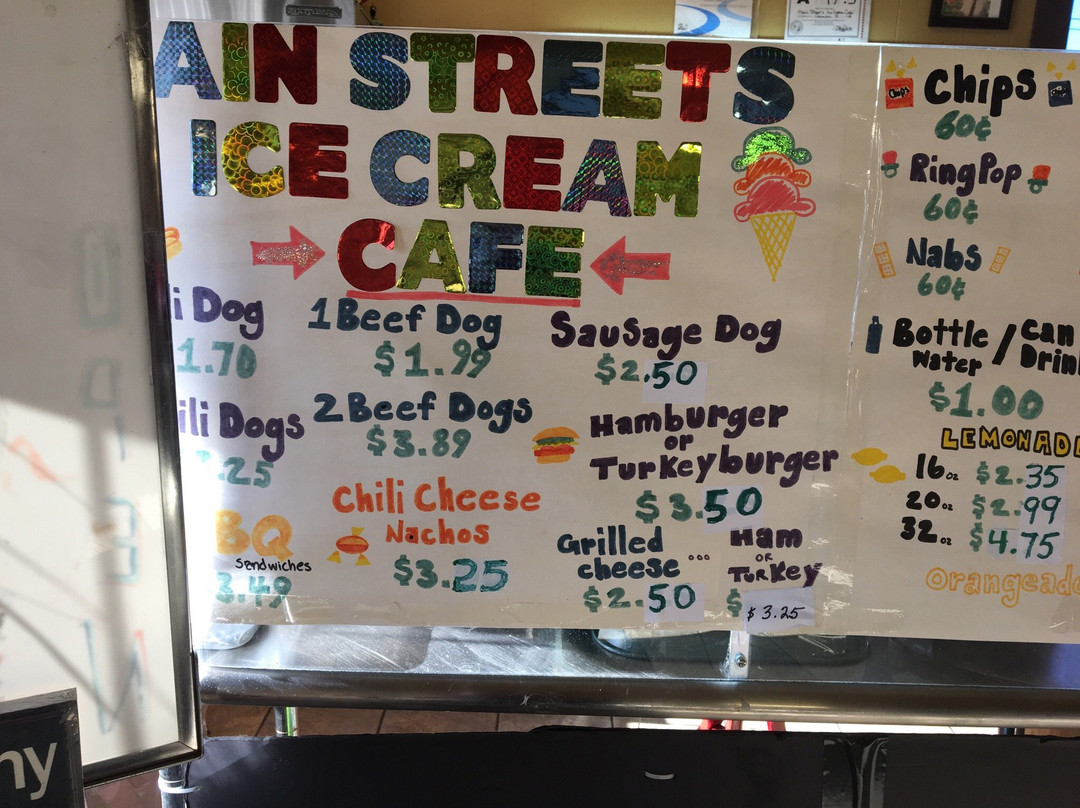 AIN STREETS
ICE CREAM
CAFE
i Dog
1.70
ili Dogs
.25
BQ
Sandwiches
3.49
1 Beef Dog
$1.99
2 Beef Dogs
$3.89
Chili Cheese
Nachos
$3.25
Sausage Dog
$2.50
Hamburger
or
Turkeyburger
$3.50
Grilled
cheese ...
$2.50
Ham
OR
Turkey
$ $3.25
Chips
Chips
60¢
Ring Pop
60¢
Nabs
60¢
Bottle / Can
Water Drin
$1.00
LEMONADE
16 oz $2.35
20 oz $2.99
32 oz $4.75
Orangeade
ny